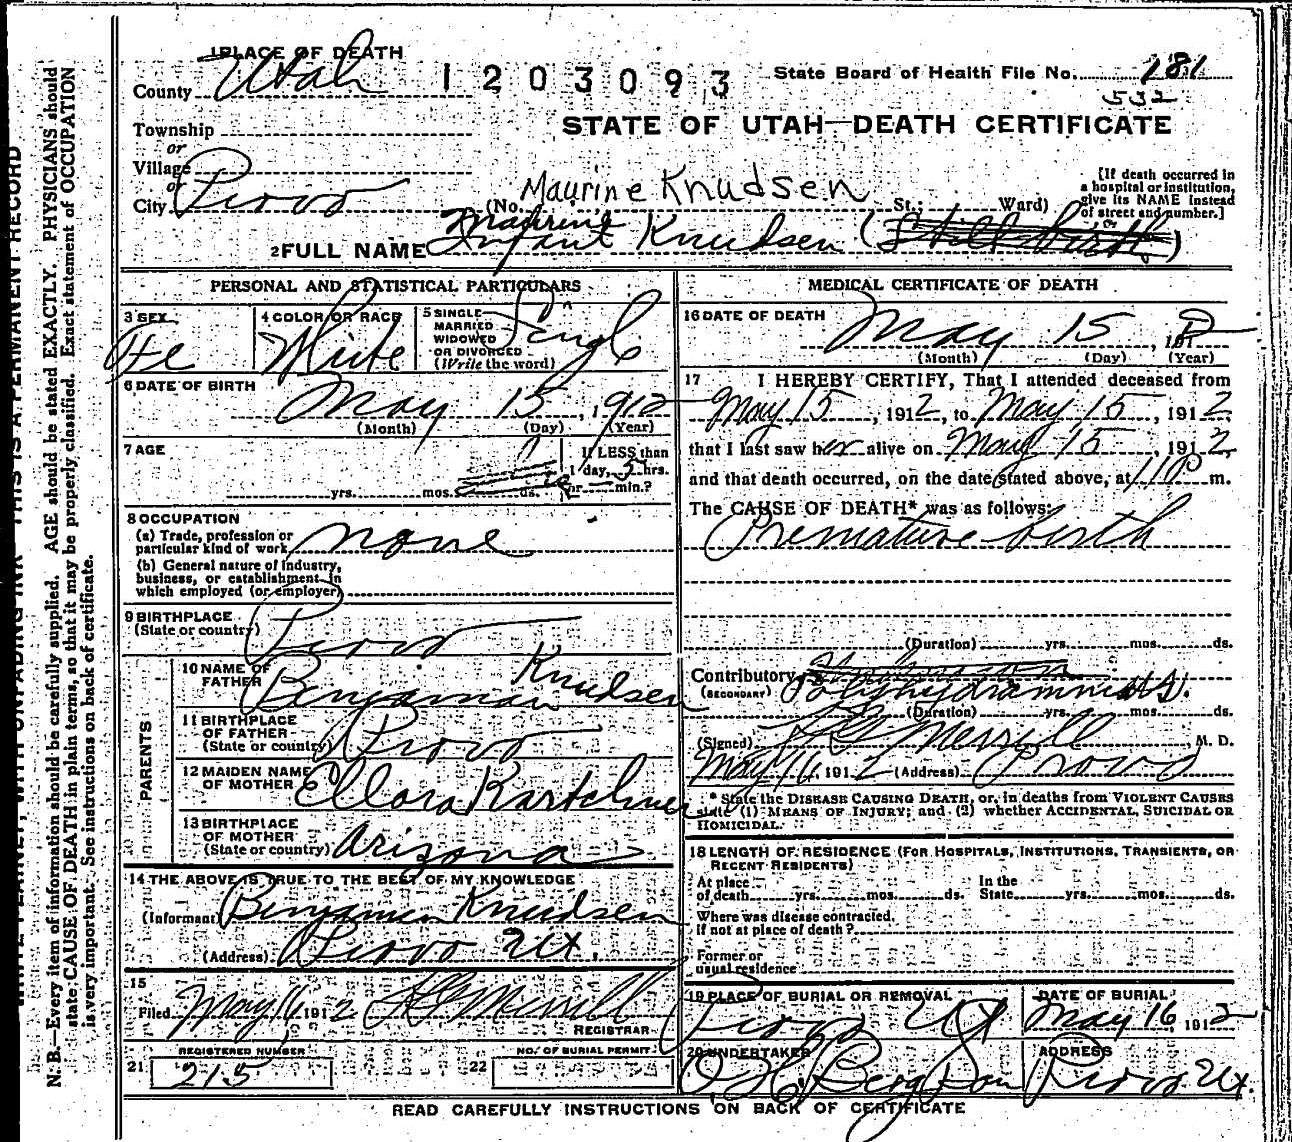 1 PLACE OF DEATH
County Utah
1203093
State Board of Health File No. 181
532
Township
or
Village
or
City Provo
STATE OF UTAH—DEATH CERTIFICATE
(No. Maurine Knudsen St.; Ward)
[If death occurred in
a hospital or institution,
give its NAME instead
of street and number.]
Maurine
2 FULL NAME Infant Knudsen (Still birth)
PERSONAL AND STATISTICAL PARTICULARS
3 SEX
Fe
4 COLOR OR RACE
White
5 SINGLE
MARRIED
WIDOWED
OR DIVORCED
(Write the word)
Single
6 DATE OF BIRTH
May 15, 1912
(Month) (Day) (Year)
7 AGE
yrs. mos. ds.
If LESS than
1 day, 5 hrs.
or min.?
8 OCCUPATION
(a) Trade, profession or
particular kind of work none
(b) General nature of industry,
business, or establishment in
which employed (or employer)
9 BIRTHPLACE
(State or country) Provo
PARENTS
10 NAME OF
FATHER Benjaman Knudsen
11 BIRTHPLACE
OF FATHER
(State or country) Provo
12 MAIDEN NAME
OF MOTHER Clara Kartchner
13 BIRTHPLACE
OF MOTHER
(State or country) Arizona
14 THE ABOVE IS TRUE TO THE BEST OF MY KNOWLEDGE
(Informant) Benjamin Knudsen
(Address) Provo Ut.
15
Filed May 16 1912 Merrill
REGISTRAR
REGISTERED NUMBER
21 215
NO. OF BURIAL PERMIT
22
MEDICAL CERTIFICATE OF DEATH
16 DATE OF DEATH
May 15, 191
(Month) (Day) (Year)
17 I HEREBY CERTIFY, That I attended deceased from
May 15, 1912, to May 15, 1912,
that I last saw her alive on May 15, 1912
and that death occurred, on the date stated above, at 110 P m.
The CAUSE OF DEATH* was as follows:
Premature birth
(Duration) yrs. mos. ds.
Contributory
(SECONDARY) Polyhydramnios.
(Duration) yrs. mos. ds.
(Signed) Merrill, M. D.
May 16, 1912 (Address) Provo
* State the DISEASE CAUSING DEATH, or, in deaths from VIOLENT CAUSES
state (1) MEANS OF INJURY; and (2) whether ACCIDENTAL, SUICIDAL OR
HOMICIDAL.
18 LENGTH OF RESIDENCE (FOR HOSPITALS, INSTITUTIONS, TRANSIENTS, OR
RECENT RESIDENTS)
At place
of death yrs. mos. ds. In the
State yrs. mos. ds.
Where was disease contracted,
if not at place of death?
Former or
usual residence
19 PLACE OF BURIAL OR REMOVAL
Provo Ut
DATE OF BURIAL
May 16 1912
20 UNDERTAKER
O H Berg & Son
ADDRESS
Provo Ut.
READ CAREFULLY INSTRUCTIONS ON BACK OF CERTIFICATE
N. B.—Every item of information should be carefully supplied. AGE should be stated EXACTLY. PHYSICIANS should
state CAUSE OF DEATH in plain terms, so that it may be properly classified. Exact statement of OCCUPATION
is very important. See instructions on back of certificate.
WRITE PLAINLY, WITH UNFADING INK—THIS IS A PERMANENT RECORD